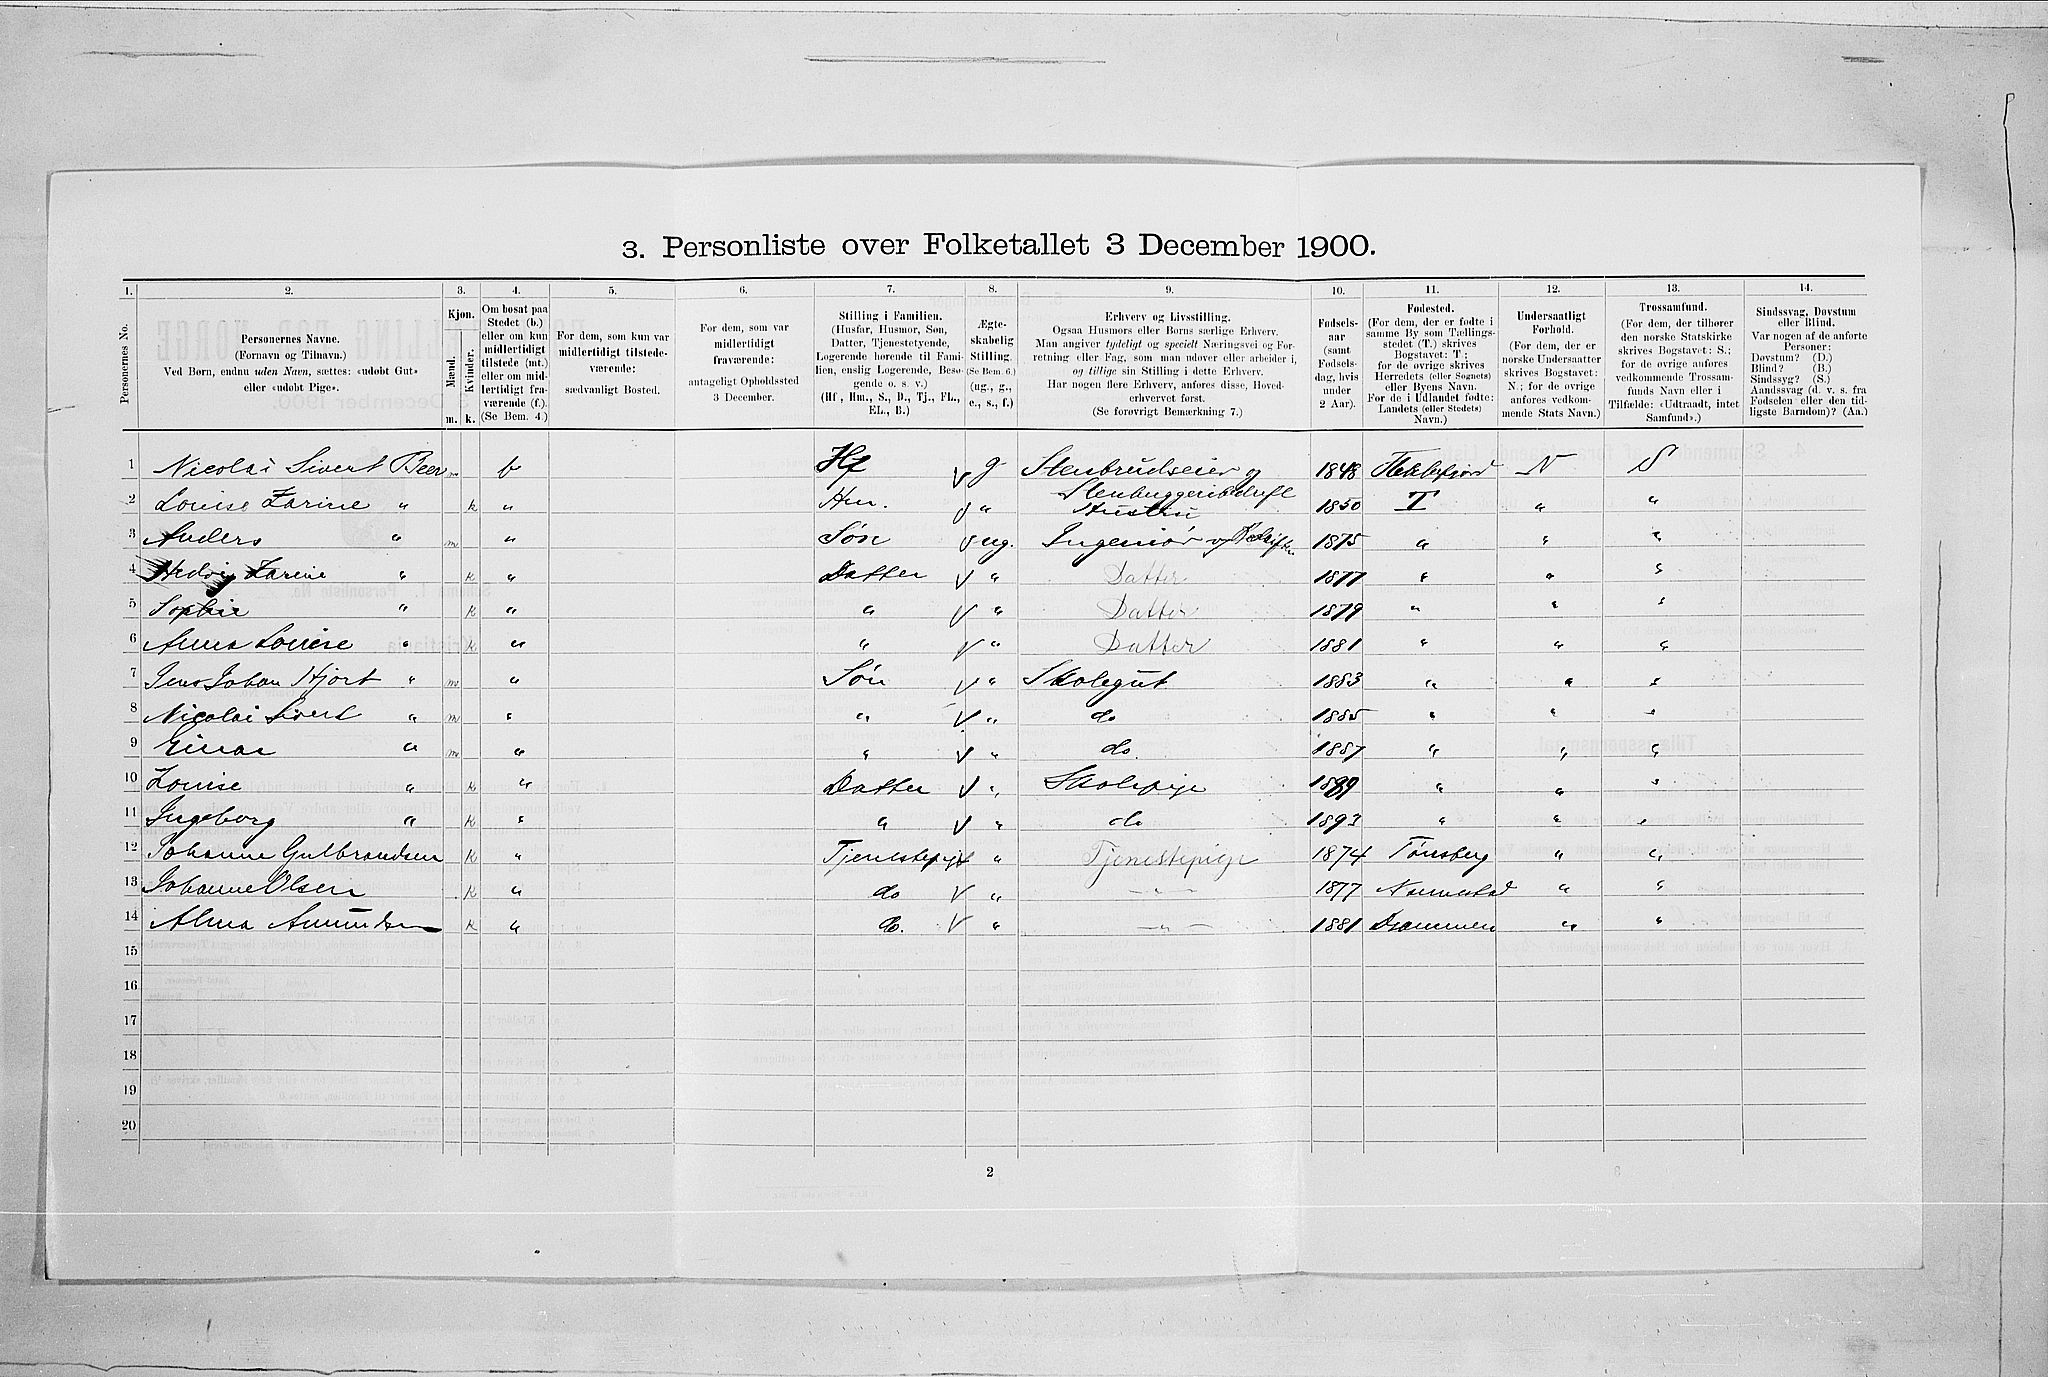 3. Personliste over Folketallet 3 December 1900.
1. 2. 3. 4. 5. 6. 7. 8. 9. 10. 11. 12. 13. 14.
Personernes No.
Personernes Navne.
(Fornavn og Tilnavn.)
Ved Børn, endnu uden Navn, sættes: «udøbt Gut»
eller «udøbt Pige».
Kjøn.
Mænd. Kvinder.
m. k.
Om bosat paa
Stedet (b.)
eller om kun
midlertidigt
tilstede (mt.)
eller om mid-
lertidigt fra-
værende (f.).
(Se Bem. 4.)
For dem, som kun var
midlertidigt tilstede-
værende:
sædvanligt Bosted.
For dem, som var
midlertidigt
fraværende:
antageligt Opholdssted
3 December.
Stilling i Familien.
(Husfar, Husmor, Søn,
Datter, Tjenestetyende,
Logerende hørende til Fami-
lien, enslig Logerende, Besø-
gende o. s. v.)
(Hf., Hm., S., D., Tj., FL.,
EL., B.)
Ægte-
skabelig
Stilling.
(Se Bem. 6.)
(ug., g.,
e., s., f.)
Erhverv og Livsstilling.
Ogsaa Husmors eller Børns særlige Erhverv.
Man angiver tydeligt og specielt Næringsvei og For-
retning eller Fag, som man udøver eller arbeider i,
og tillige sin Stilling i dette Erhverv.
Har nogen flere Erhverv, anføres disse, Hoved-
erhvervet først.
(Se forøvrigt Bemærkning 7.)
Fødsels-
aar
(samt
Fødsels-
dag, hvis
under
2 Aar).
Fødested.
(For dem, der er fødte i
samme By som Tællings-
stedet (T.) skrives
Bogstavet: T;
for de øvrige skrives
Herredets (eller Sognets)
eller Byens Navn.
For de i Udlandet fødte:
Landets (eller Stedets)
Navn.)
Undersaatligt
Forhold.
(For dem, der er
norske Undersaatter
skrives Bogstavet:
N.; for de øvrige
anføres vedkom-
mende Stats Navn.)
Trossamfund.
(For dem, der tilhører
den norske Statskirke
skrives Bogstavet: S.;
for de øvrige anføres
vedkommende Trossam-
funds Navn eller i
Tilfælde: «Udtraadt, intet
Samfund».)
Sindssvag, Døvstum
eller Blind.
Var nogen af de anførte
Personer:
Døvstum? (D.)
Blind? (B.)
Sindssyg? (S.)
Aandssvag (d. v. s. fra
Fødselen eller den tid-
ligste Barndom)? (Aa.)
1 Nicolai Sivert Beer m b Hf g Stenbrudseier og 1848 Flekkefjord N S
Stenhuggeribedrift
2 Louise Zarine " k " Hm. " Hustru 1850 T " "
3 Anders " m " Søn ug. Ingeniør 1875 " " "
4 Hedvig Zarine " k " Datter " Datter 1877 " " "
5 Sophie " k " " " Datter 1879 " " "
6 Anna Louise " k " " " Datter 1881 " " "
7 Jens Johan Hjort " m " Søn " Skolegut 1883 " " "
8 Nicolai Sivert " m " " " do 1885 " " "
9 Einar " m " " " do. 1887 " " "
10 Louise " k " Datter " Skolepige 1889 " " "
11 Ingeborg " k " " " do 1893 " " "
12 Johanne Gulbrandsen k " Tjenestepige " Tjenestepige 1874 Tønsberg " "
13 Johanne Olsen k " do " — " — 1877 " "
14 Alma Amundsen k " do. " — " — 1881 Drammen " "
15
16
17
18
19
20
2